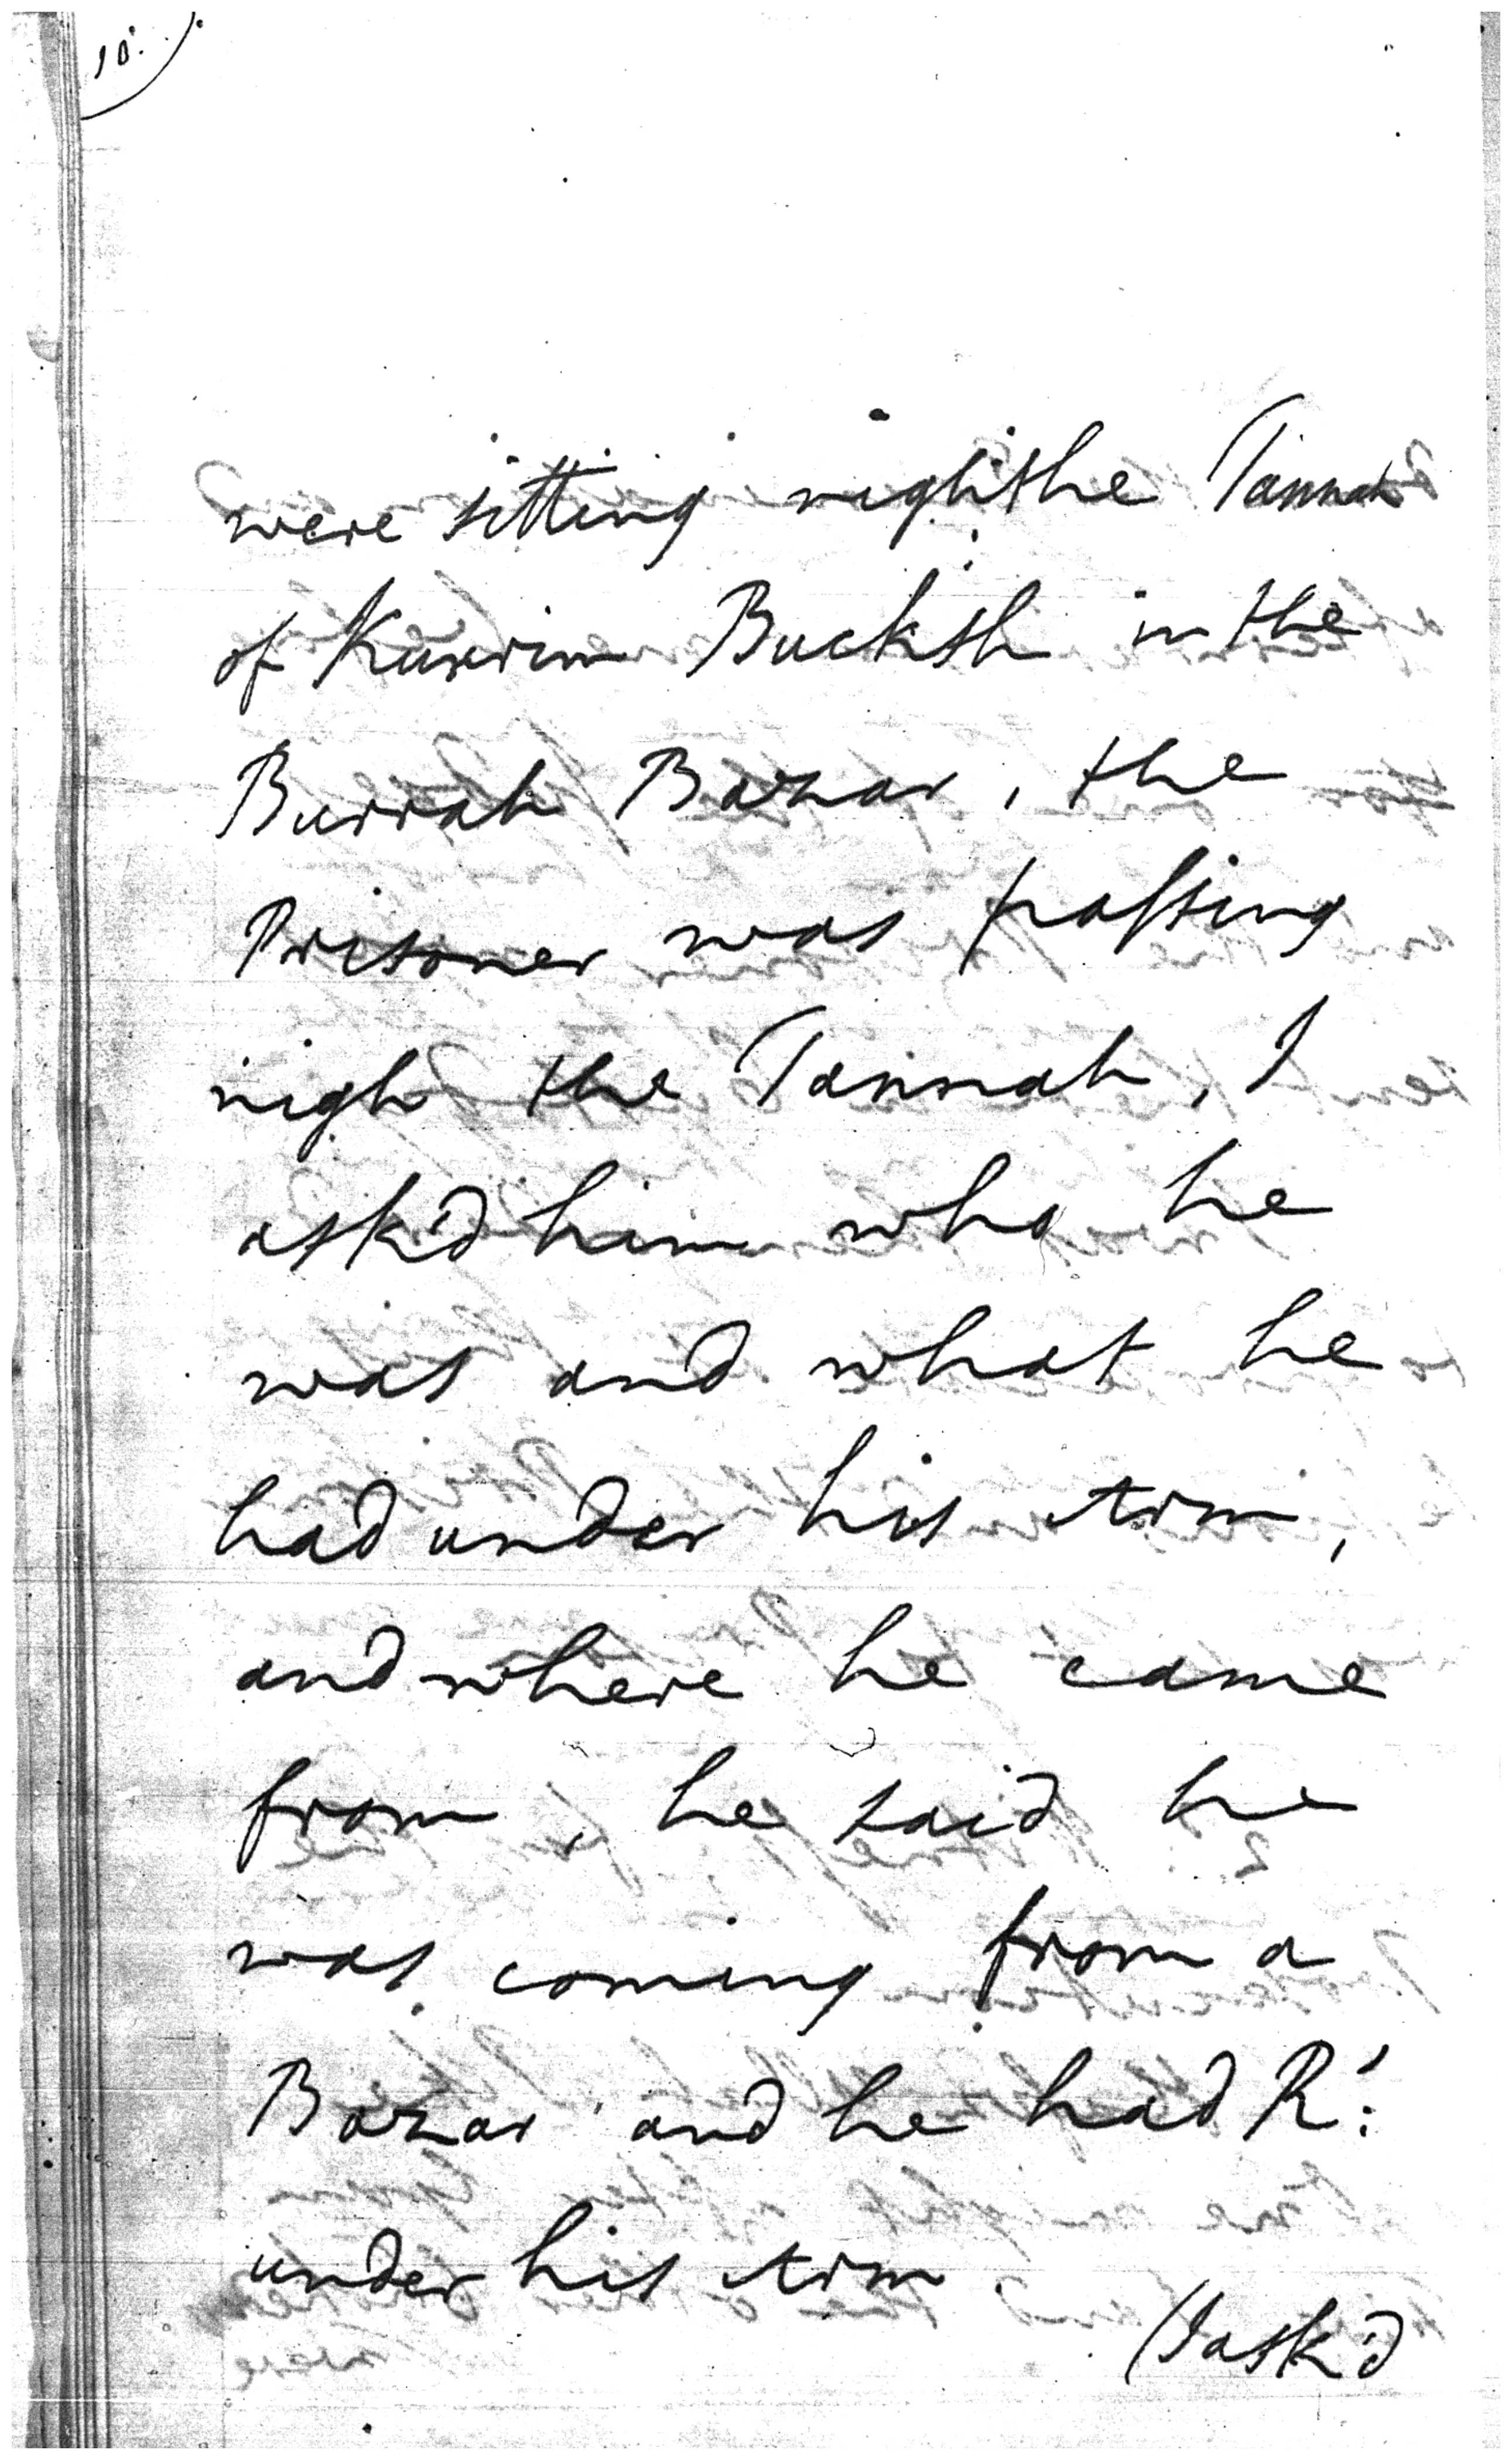 10.
were sitting nigh the Tannah
of Kurrim Bucksh in the
Burrah Bazar, the
Prisoner was passing
nigh the Tannah, I
ask'd him who he
was and what he
had under his Arm,
and where he came
from, he said he
was coming from a
Bazar and he had R.s
under his Arm.
(I ask'd